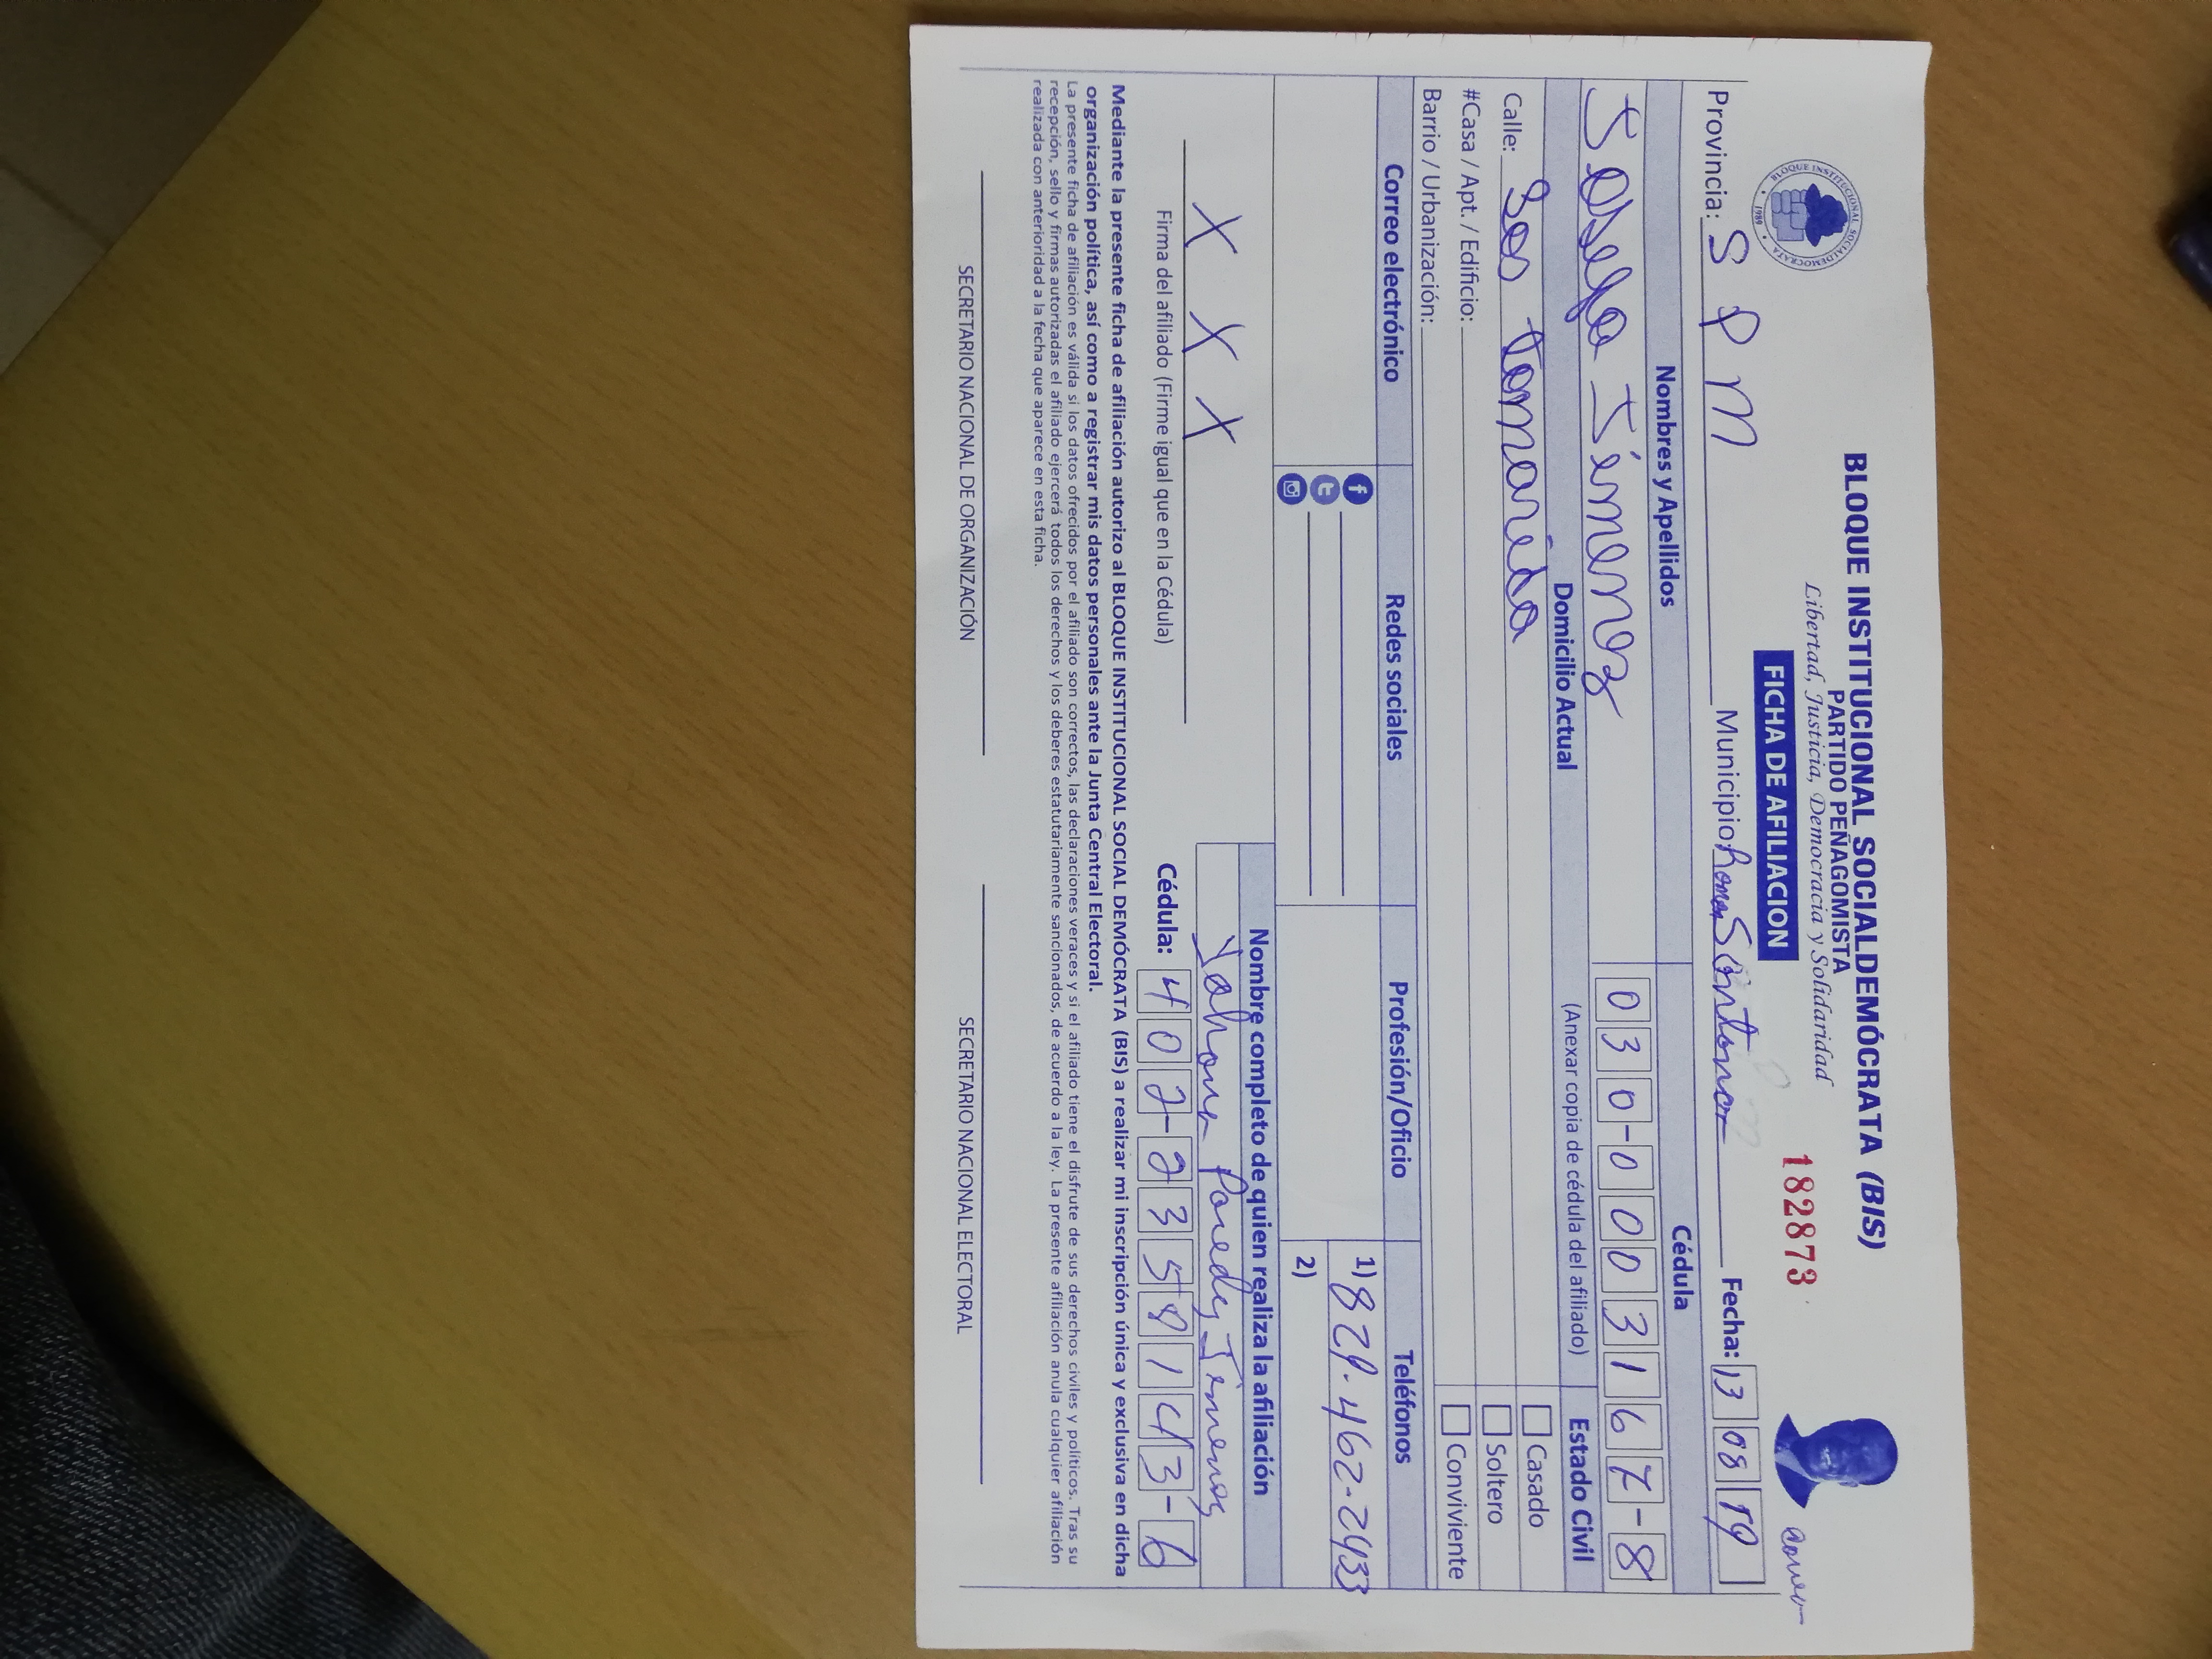 BLOQUE INSTITUCIONAL SOCIALDEMÓCRATA (BIS)
PARTIDO PEÑAGOMISTA
Libertad, Justicia, Democracia y Solidaridad
BLOQUE INSTITUCIONAL SOCIALDEMOCRATA
1989
FICHA DE AFILIACION
182873
Provincia: S P M Municipio: Santana Fecha: 13 08 19
Nombres y Apellidos Cédula
Josefa Jimenez 030-0003167-8
Domicilio Actual (Anexar copia de cédula del afiliado) Estado Civil
Calle: Casado
#Casa / Apt. / Edificio: Soltero
Barrio / Urbanización: Conviviente
Correo electrónico Redes sociales Profesión/Oficio Teléfonos
1) 829-462-2933
2)
Nombre completo de quien realiza la afiliación
X X X Paredes Jimenez
Firma del afiliado (Firme igual que en la Cédula) Cédula: 402-2358143-6
Mediante la presente ficha de afiliación autorizo al BLOQUE INSTITUCIONAL SOCIAL DEMÓCRATA (BIS) a realizar mi inscripción única y exclusiva en dicha
organización política, así como a registrar mis datos personales ante la Junta Central Electoral.
La presente ficha de afiliación es válida si los datos ofrecidos por el afiliado son correctos, las declaraciones veraces y si el afiliado tiene el disfrute de sus derechos civiles y políticos. Tras su
recepción, sello y firmas autorizadas el afiliado ejercerá todos los derechos y los deberes estatutariamente sancionados, de acuerdo a la ley. La presente afiliación anula cualquier afiliación
realizada con anterioridad a la fecha que aparece en esta ficha.
SECRETARIO NACIONAL DE ORGANIZACIÓN SECRETARIO NACIONAL ELECTORAL